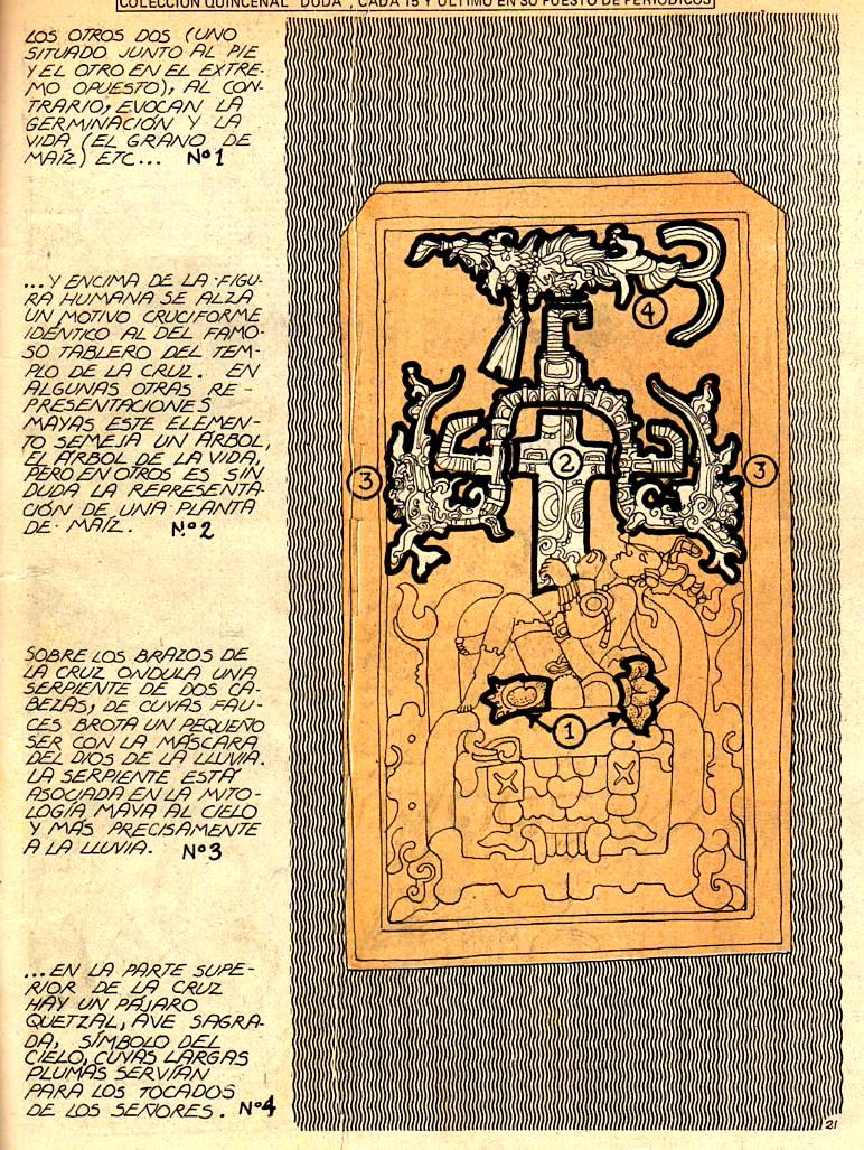 COLECCION QUINCENAL "DUDA", CADA 15 Y ULTIMO EN SU PUESTO DE PERIODICOS
LOS OTROS DOS (UNO
SITUADO JUNTO AL PIE
Y EL OTRO EN EL EXTRE-
MO OPUESTO), AL CON-
TRARIO, EVOCAN LA
GERMINACIÓN Y LA
VIDA (EL GRANO DE
MAÍZ) ETC... Nº1
...Y ENCIMA DE LA FIGU-
RA HUMANA SE ALZA
UN MOTIVO CRUCIFORME
IDÉNTICO AL DEL FAMO-
SO TABLERO DEL TEM-
PLO DE LA CRUZ. EN
ALGUNAS OTRAS RE-
PRESENTACIONES
MAYAS ESTE ELEMEN-
TO SEMEJA UN ÁRBOL,
EL ÁRBOL DE LA VIDA,
PERO EN OTROS ES SIN
DUDA LA REPRESENTA-
CIÓN DE UNA PLANTA
DE MAÍZ. Nº2
SOBRE LOS BRAZOS DE
LA CRUZ ONDULA UNA
SERPIENTE DE DOS CA-
BEZAS, DE CUYAS FAU-
CES BROTA UN PEQUEÑO
SER CON LA MÁSCARA
DEL DIOS DE LA LLUVIA.
LA SERPIENTE ESTÁ
ASOCIADA EN LA MITO-
LOGÍA MAYA AL CIELO
Y MÁS PRECISAMENTE
A LA LLUVIA. Nº3
...EN LA PARTE SUPE-
RIOR DE LA CRUZ
HAY UN PÁJARO
QUETZAL, AVE SAGRA-
DA, SÍMBOLO DEL
CIELO, CUYAS LARGAS
PLUMAS SERVÍAN
PARA LOS TOCADOS
DE LOS SEÑORES. Nº4
4
2
3
3
1
21